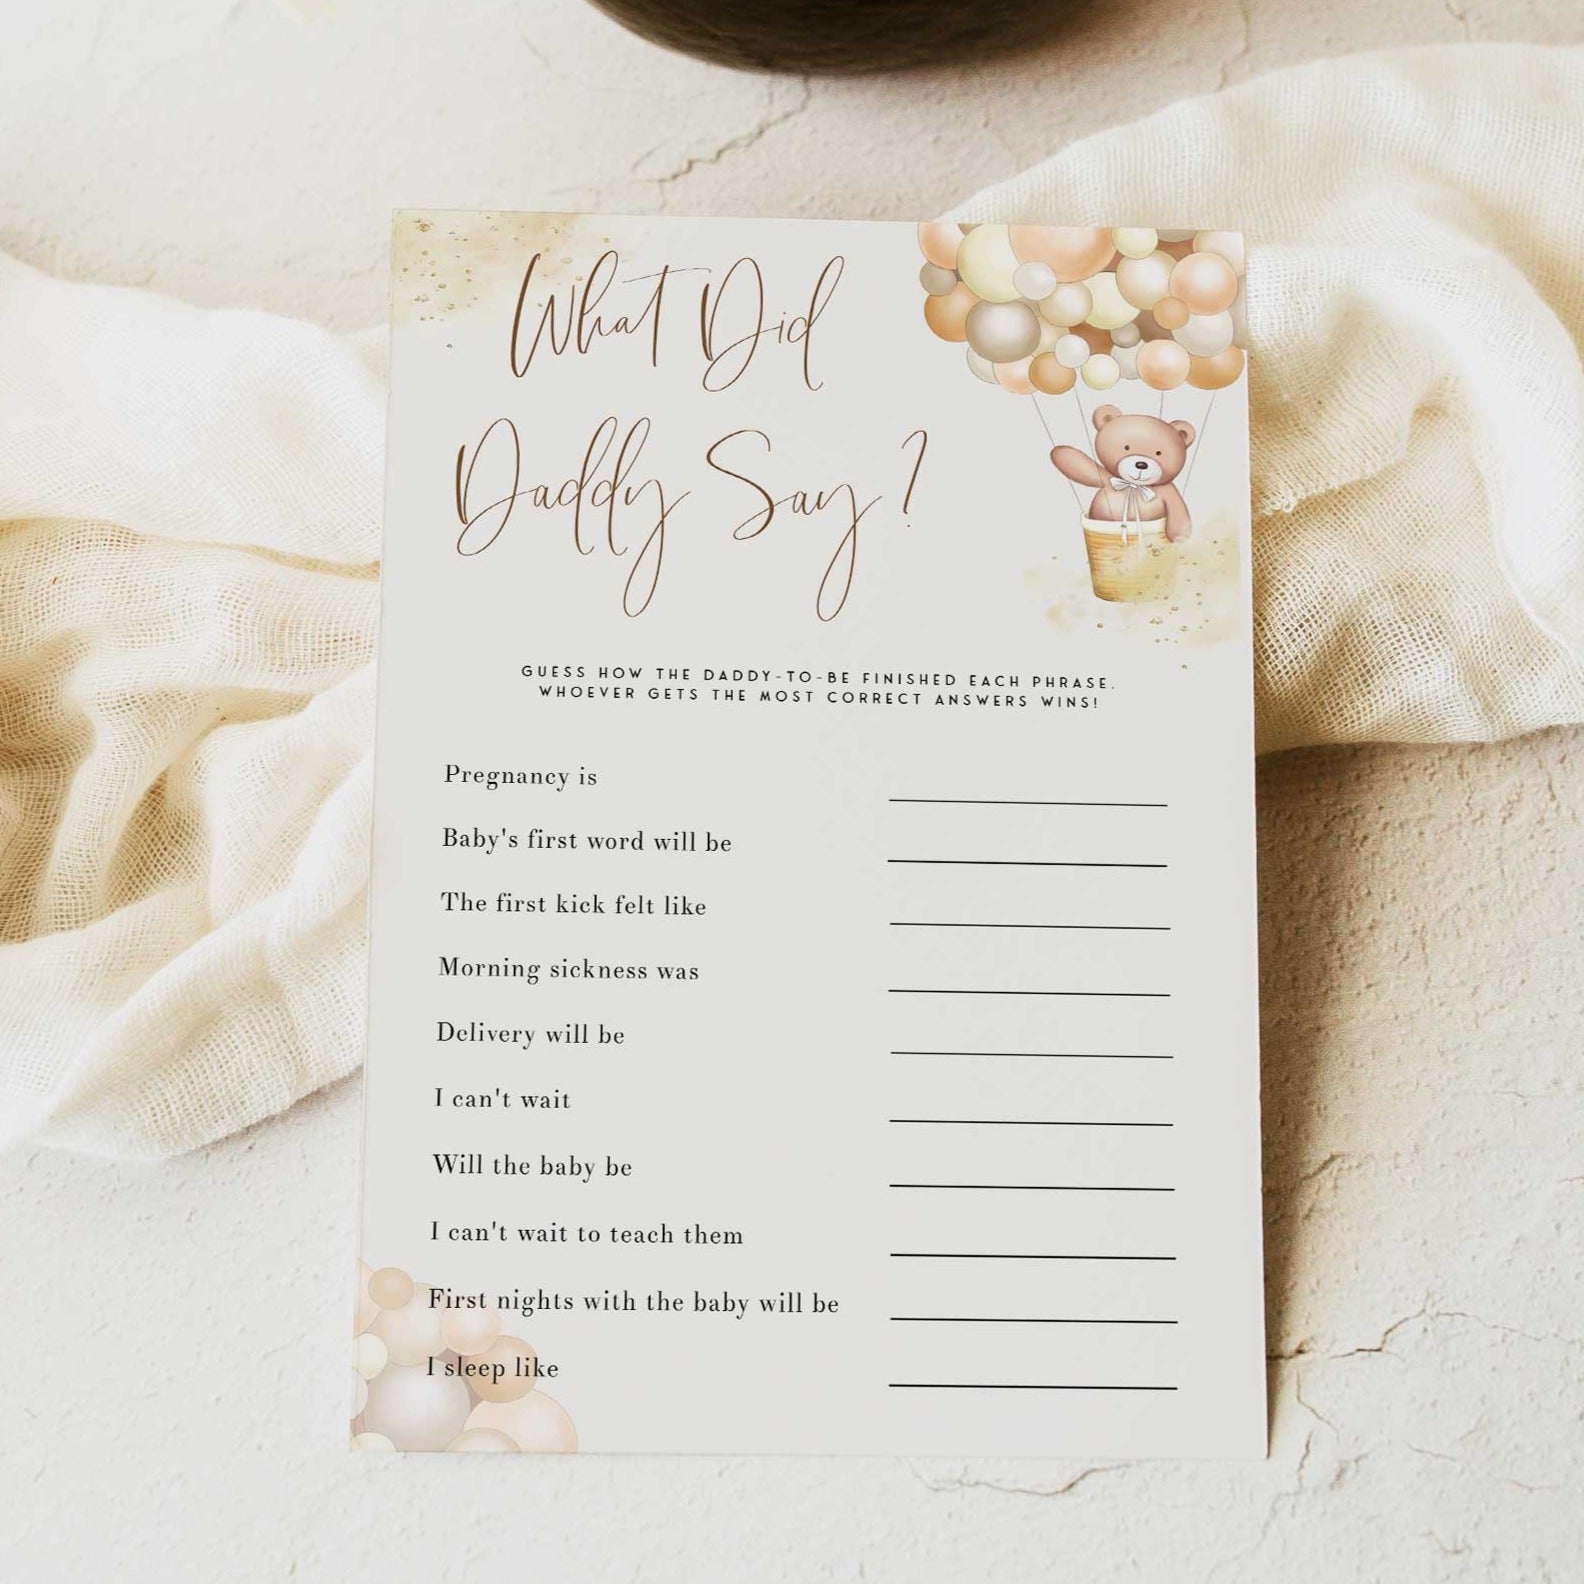 What Did
Daddy Say?
GUESS HOW THE DADDY-TO-BE FINISHED EACH PHRASE.
WHOEVER GETS THE MOST CORRECT ANSWERS WINS!
Pregnancy is
Baby's first word will be
The first kick felt like
Morning sickness was
Delivery will be
I can't wait
Will the baby be
I can't wait to teach them
First nights with the baby will be
I sleep like